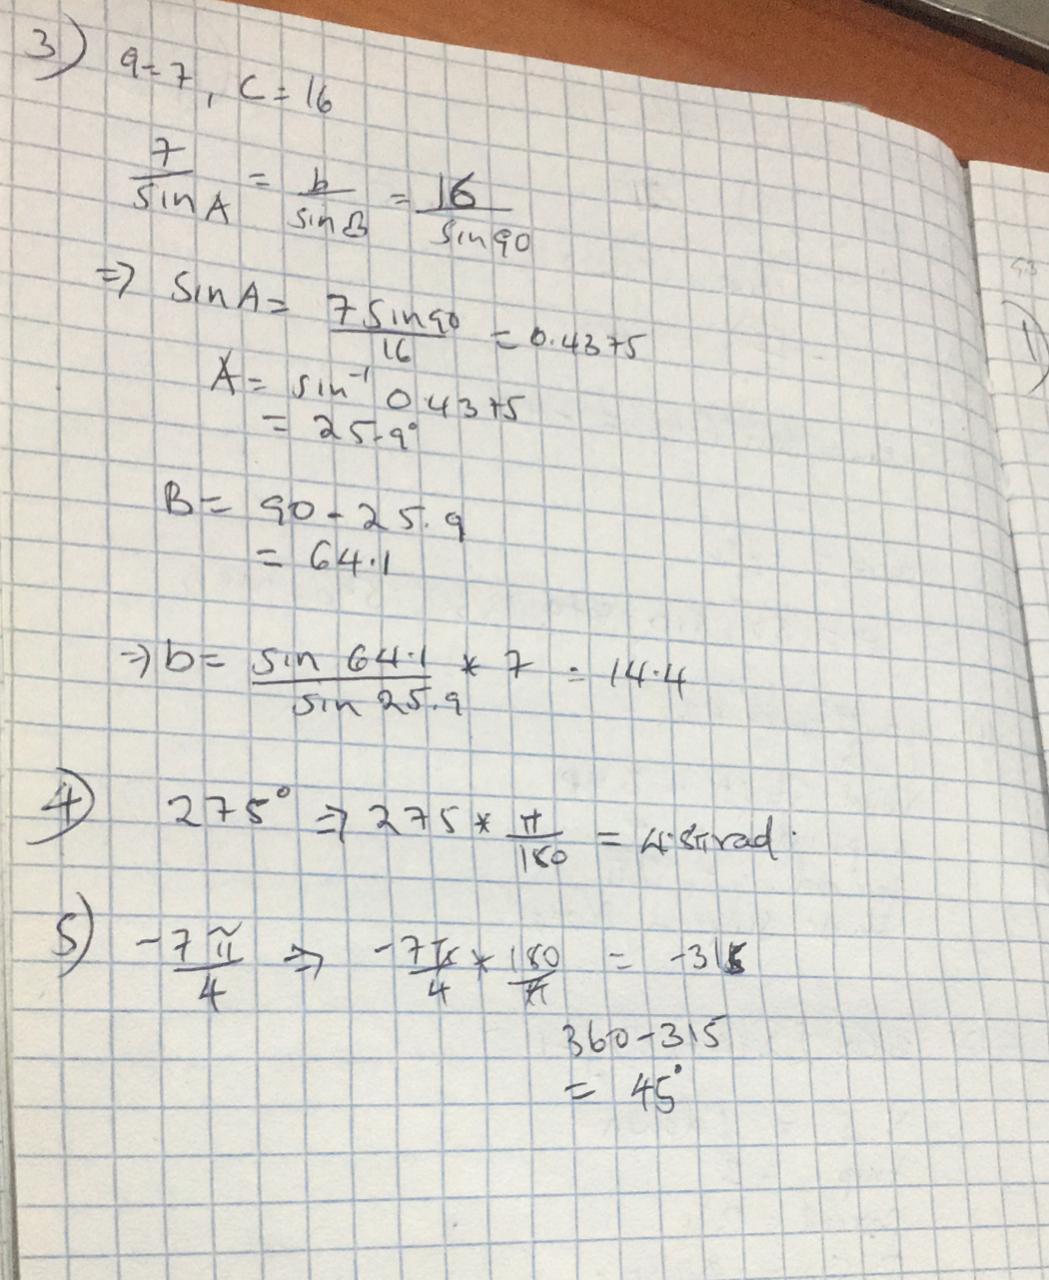 3) a=7, C=16
7/SinA = b/sinB = 16/Sin90
=> SinA = 7Sin90/16 = 0.4375
A = sin⁻¹ 0.4375
= 25.9°
B = 90 - 25.9
= 64.1
=> b = sin 64.1/sin 25.9 * 7 = 14.4
4) 275° => 275 * π/180 = rad.
5) -7π/4 => -7π/4 * 180/π = -315
360-315
= 45°
1)